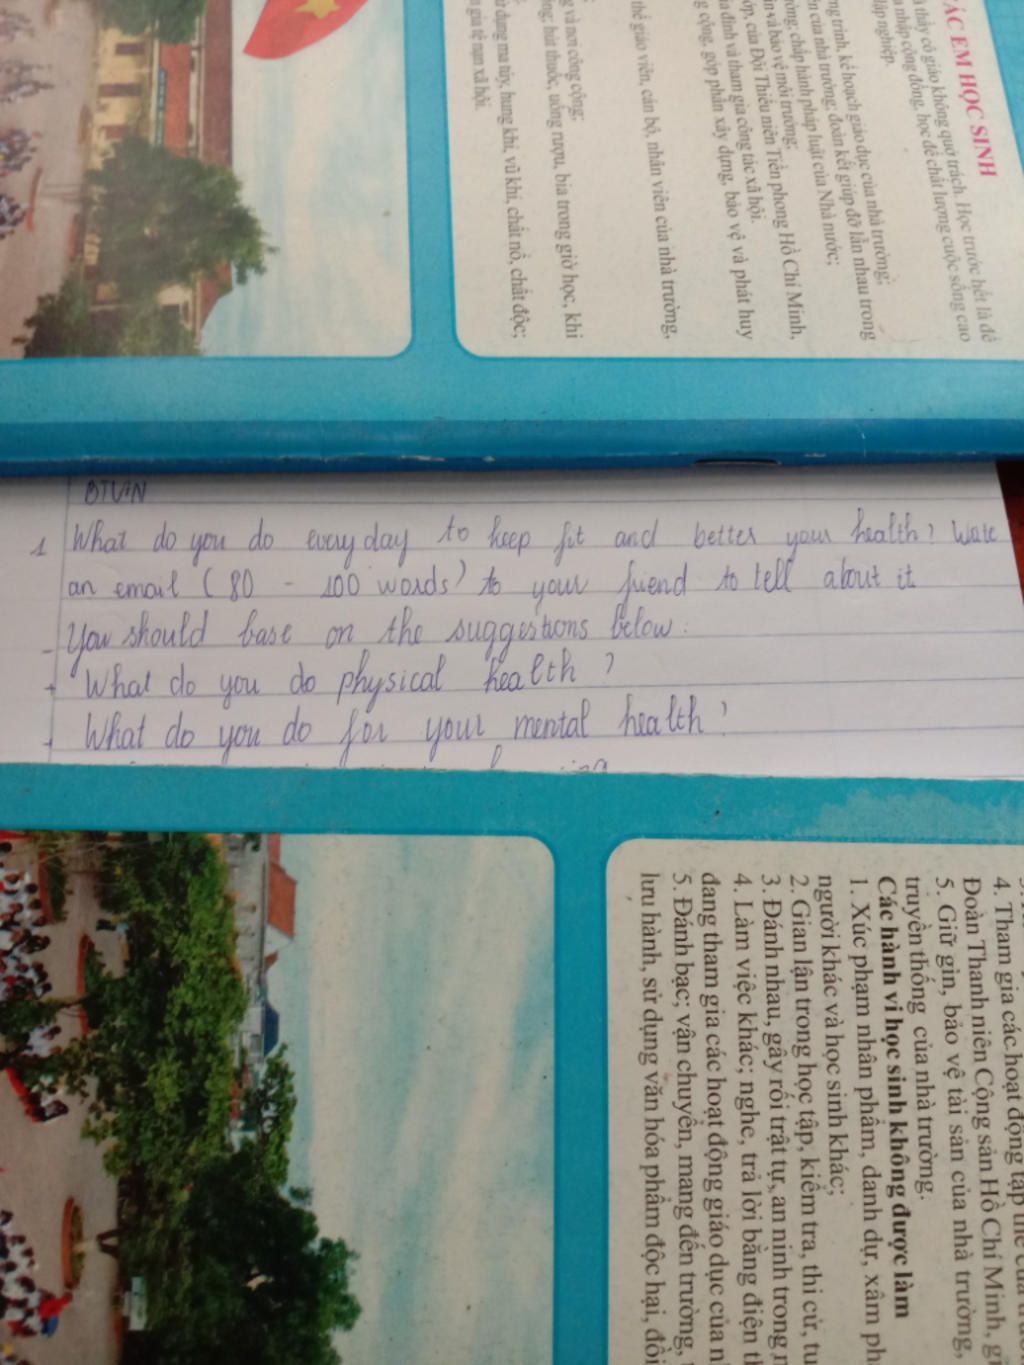 ÁC EM HỌC SINH
thầy cô giáo không quở trách. Học trước hết là để
nhập cộng đồng, học để chất lượng cuộc sống cao
lập nghiệp.
trình, kế hoạch giáo dục của nhà trường;
của nhà trường; đoàn kết giúp đỡ lẫn nhau trong
chấp hành pháp luật của Nhà nước;
và bảo vệ môi trường;
của Đội Thiếu niên Tiền phong Hồ Chí Minh,
đình và tham gia công tác xã hội.
cộng, góp phần xây dựng, bảo vệ và phát huy
thể giáo viên, cán bộ, nhân viên của nhà trường,
và nơi công cộng;
hút thuốc, uống rượu, bia trong giờ học, khi
dụng ma túy, hung khí, vũ khí, chất nổ, chất độc;
gia tệ nạn xã hội.
BTVN
1 What do you do everyday to keep fit and better your health? Write
an email (80 - 100 words) to your friend to tell about it
- You should base on the suggestions below:
+ What do you do physical health?
+ What do you do for your mental health?
4. Tham gia các hoạt động tập thể của
Đoàn Thanh niên Cộng sản Hồ Chí Minh,
5. Giữ gìn, bảo vệ tài sản của nhà trường,
truyền thống của nhà trường.
Các hành vi học sinh không được làm
1. Xúc phạm nhân phẩm, danh dự, xâm
người khác và học sinh khác;
2. Gian lận trong học tập, kiểm tra, thi cử,
3. Đánh nhau, gây rối trật tự, an ninh trong
4. Làm việc khác; nghe, trả lời bằng điện
đang tham gia các hoạt động giáo dục của
5. Đánh bạc; vận chuyển, mang đến trường,
lưu hành, sử dụng văn hóa phẩm độc hại,